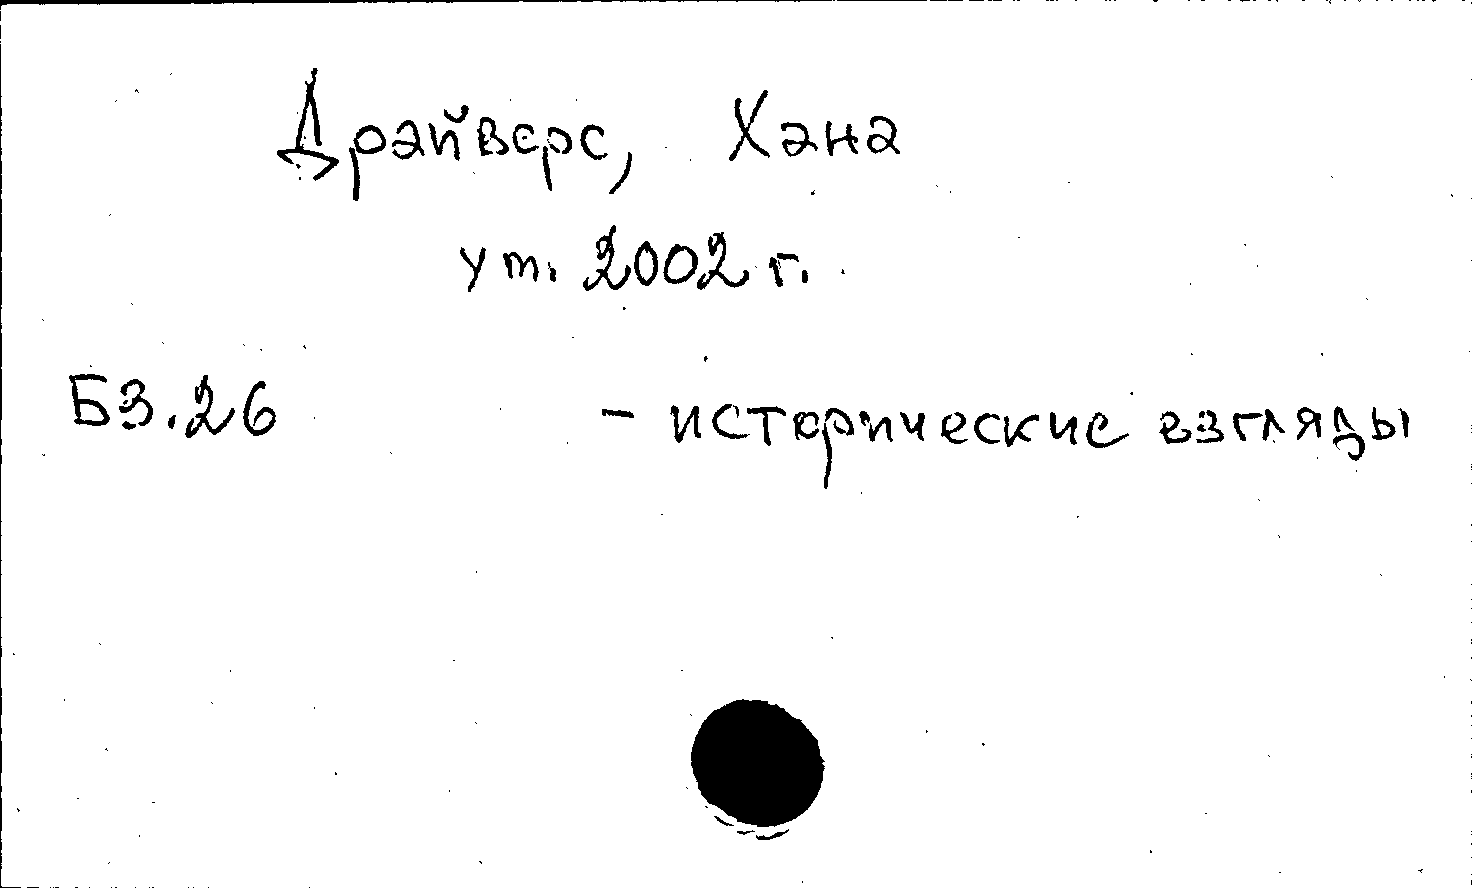 Драйверс, Хана
ут. 2002 г.
Б3.26 - исторические взгляды